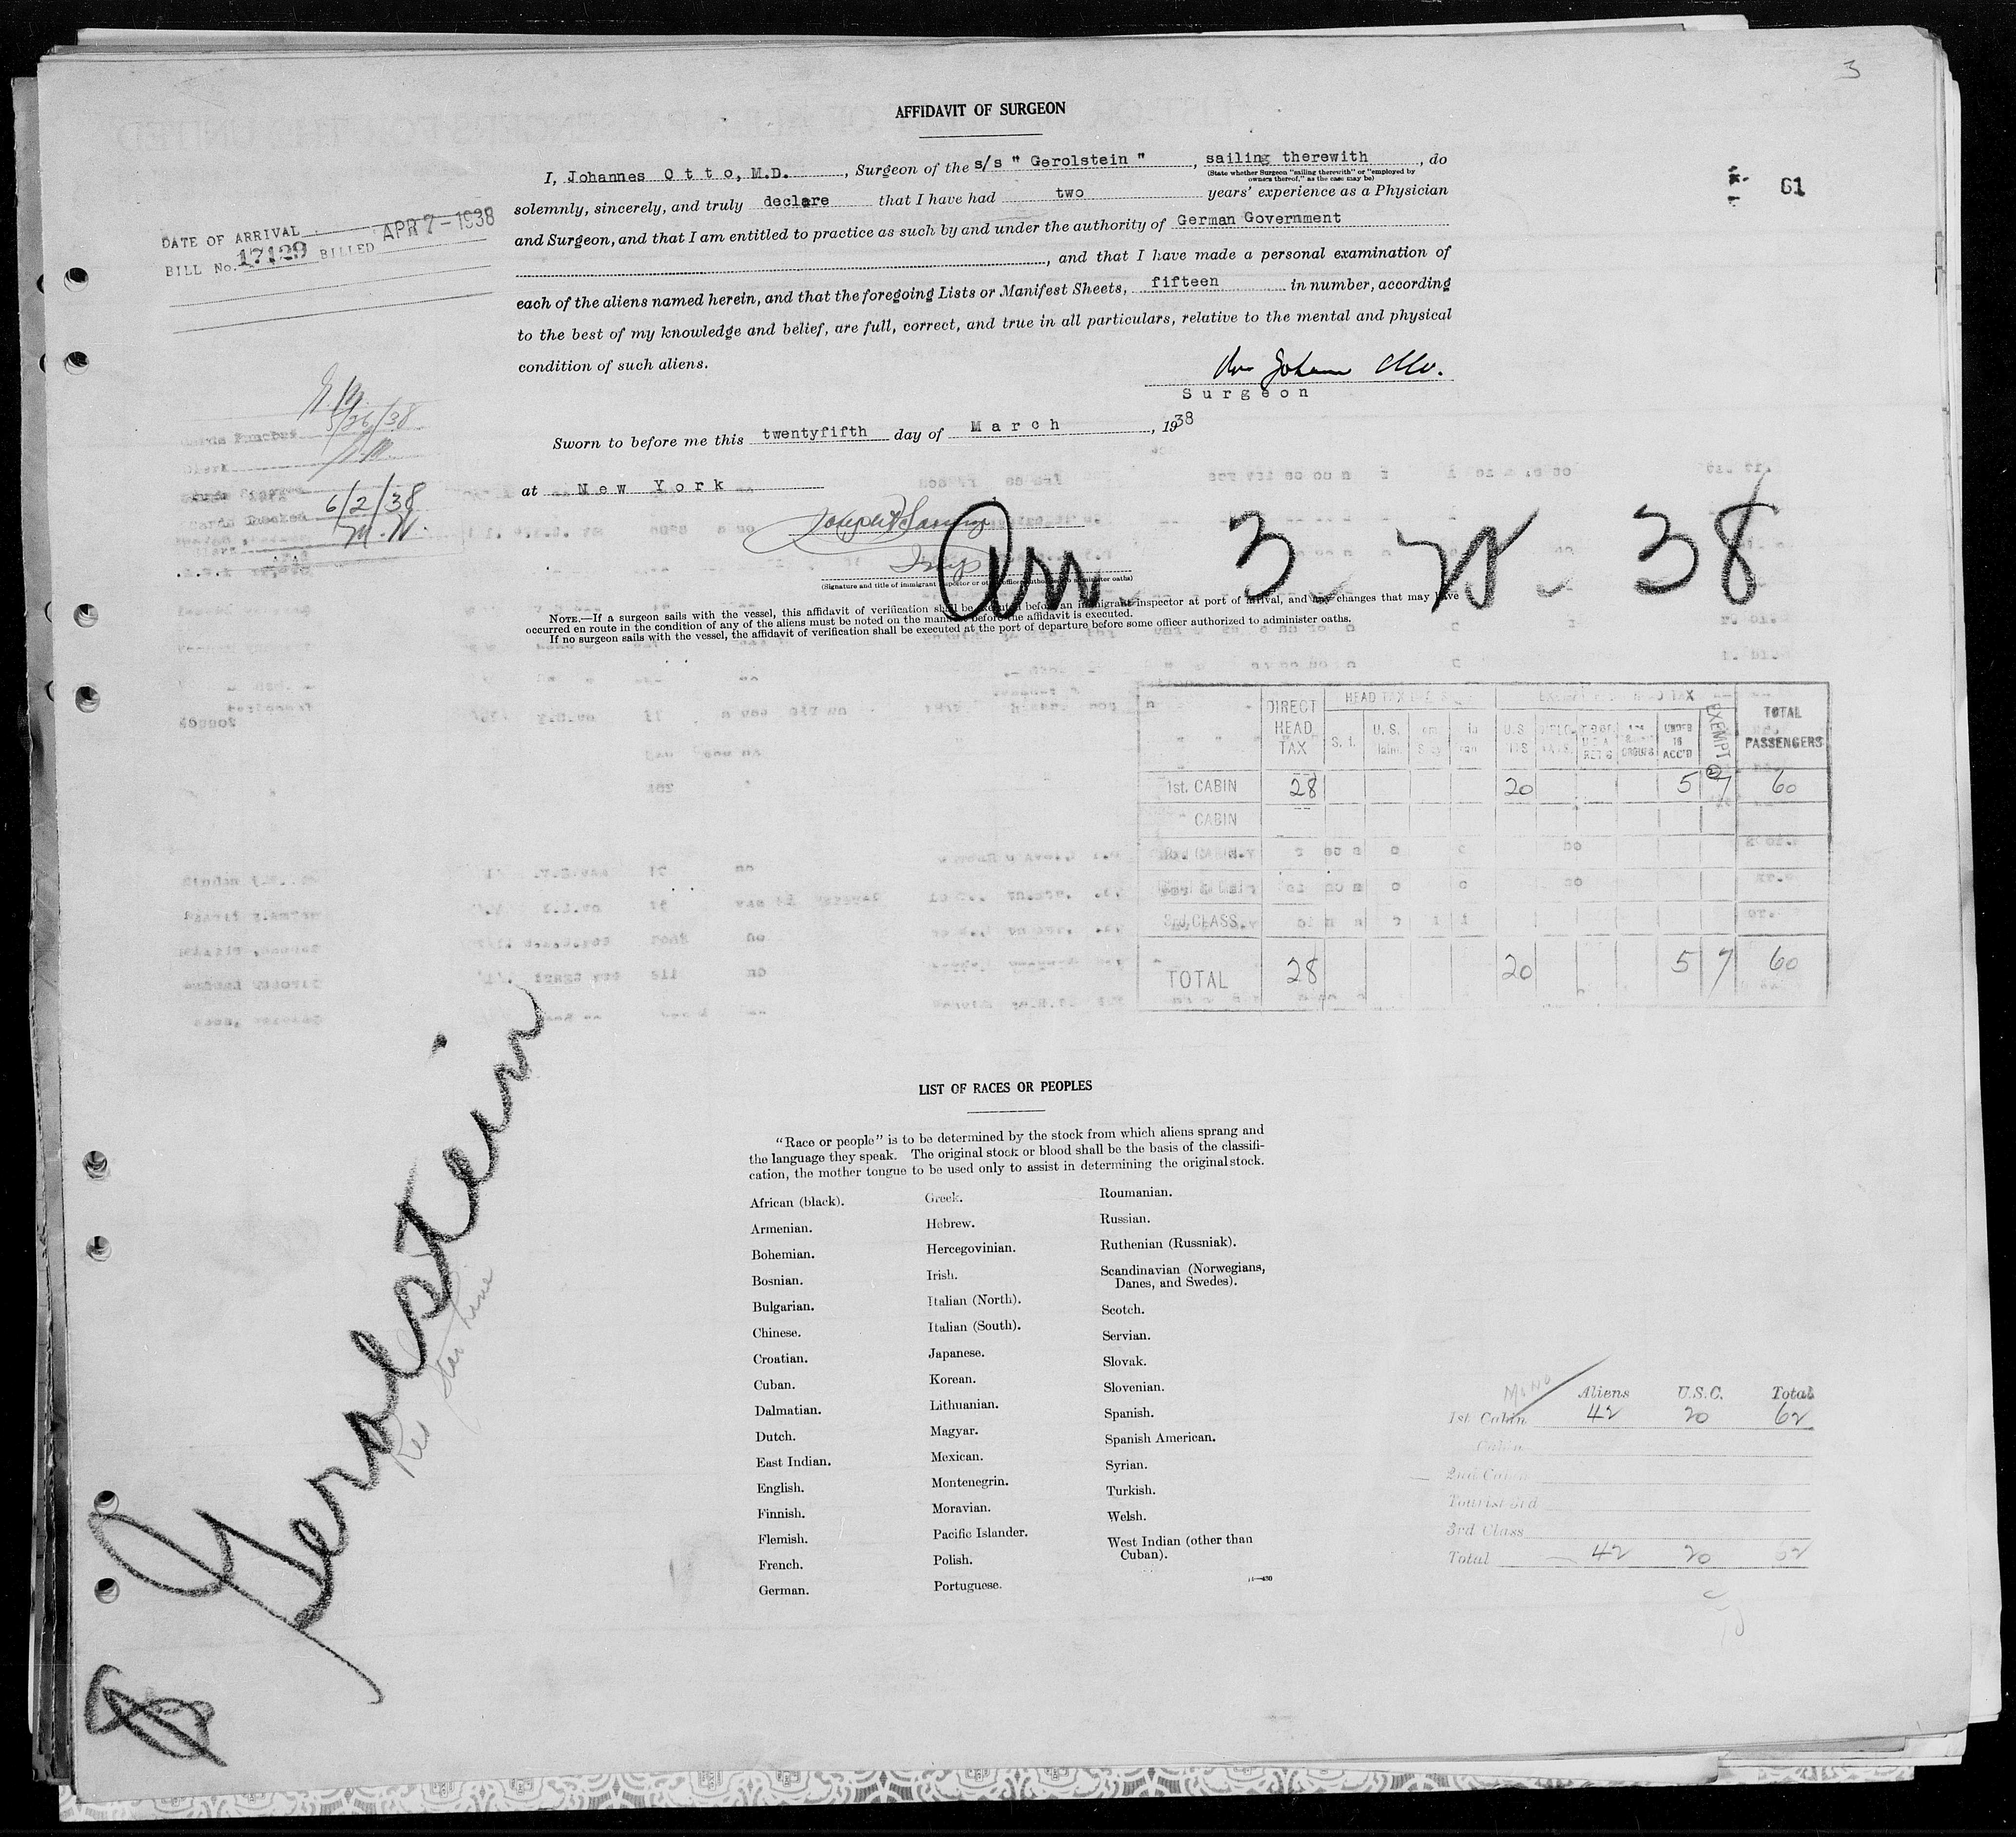 3
AFFIDAVIT OF SURGEON
I, Johannes Otto, M.D. , Surgeon of the s/s " Gerolstein " , sailing therewith , do
(State whether Surgeon "sailing therewith" or "employed by
owners thereof," as the case may be)
61
solemnly, sincerely, and truly declare that I have had two years' experience as a Physician
and Surgeon, and that I am entitled to practice as such by and under the authority of German Government
, and that I have made a personal examination of
each of the aliens named herein, and that the foregoing Lists or Manifest Sheets, fifteen in number, according
to the best of my knowledge and belief, are full, correct, and true in all particulars, relative to the mental and physical
condition of such aliens.
DATE OF ARRIVAL
BILL No. 17129 BILLED APR 7-1938
Surgeon
Sworn to before me this twentyfifth day of March , 1938
at New York
5/26/38
Clerk
6/2/38
M. W.
(Signature and title of immigrant inspector or other officer authorized to administer oaths)
Arr. 3-25-38
NOTE.—If a surgeon sails with the vessel, this affidavit of verification shall be executed before an immigrant inspector at port of arrival, and any changes that may have
occurred en route in the condition of any of the aliens must be noted on the manifest before the affidavit is executed.
If no surgeon sails with the vessel, the affidavit of verification shall be executed at the port of departure before some officer authorized to administer oaths.
DIRECT HEAD TAX
HEAD TAX
HEAD TAX
S. I.
U. S.
U.S.
UNDER 16 ACC'D
EXEMPT
TOTAL PASSENGERS
1st. CABIN 28 20 5 7 60
CABIN
3rd. CLASS
TOTAL 28 20 5 7 60
Gerolstein
Red Star Line
LIST OF RACES OR PEOPLES
"Race or people" is to be determined by the stock from which aliens sprang and
the language they speak. The original stock or blood shall be the basis of the classifi-
cation, the mother tongue to be used only to assist in determining the original stock.
African (black).
Armenian.
Bohemian.
Bosnian.
Bulgarian.
Chinese.
Croatian.
Cuban.
Dalmatian.
Dutch.
East Indian.
English.
Finnish.
Flemish.
French.
German.
Greek.
Hebrew.
Hercegovinian.
Irish.
Italian (North).
Italian (South).
Japanese.
Korean.
Lithuanian.
Magyar.
Mexican.
Montenegrin.
Moravian.
Pacific Islander.
Polish.
Portuguese.
Roumanian.
Russian.
Ruthenian (Russniak).
Scandinavian (Norwegians,
Danes, and Swedes).
Scotch.
Servian.
Slovak.
Slovenian.
Spanish.
Spanish American.
Syrian.
Turkish.
Welsh.
West Indian (other than
Cuban).
Aliens U.S.C. Total
1st Cabin 42 20 62
Cabin
2nd Cabin
Tourist 3rd
3rd Class
Total 42 20 62